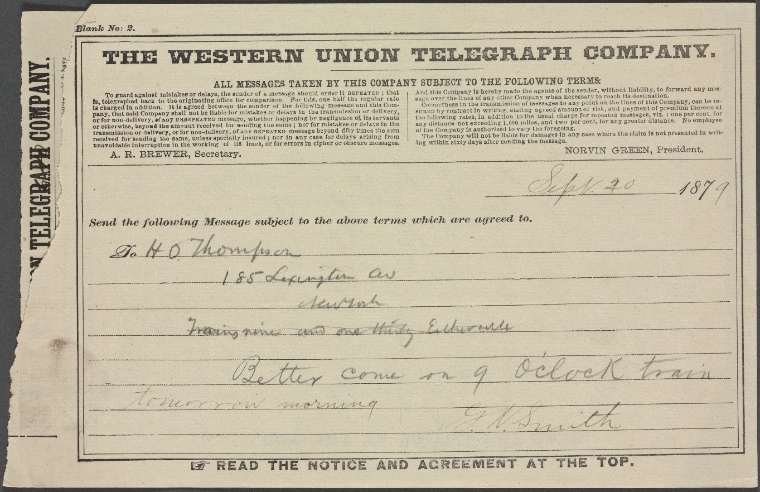 Blank No: 2.
THE WESTERN UNION TELEGRAPH COMPANY.
ALL MESSAGES TAKEN BY THIS COMPANY SUBJECT TO THE FOLLOWING TERMS:
To guard against mistakes or delays, the sender of a message should order it REPEATED; that
is, telegraphed back to the originating office for comparison. For this, one half the regular rate
is charged in addition. It is agreed between the sender of the following message and this Com-
pany, that said Company shall not be liable for mistakes or delays in the transmission or delivery,
or for non-delivery, of any UNREPEATED message, whether happening by negligence of its servants
or otherwise, beyond the amount received for sending the same; nor for mistakes or delays in the
transmission or delivery, or for non-delivery, of any REPEATED message beyond fifty times the sum
received for sending the same, unless specially insured; nor in any case for delays arising from
unavoidable interruption in the working of its lines, or for errors in cipher or obscure messages.
And this Company is hereby made the agents of the sender, without liability, to forward any mes-
sage over the lines of any other Company when necessary to reach its destination.
Correctness in the transmission of messages to any point on the lines of this Company, can be in-
sured by contract in writing, stating agreed amount of risk, and payment of premium thereon at
the following rates, in addition to the usual charge for repeated messages, viz.: one per cent. for
any distance not exceeding 1,000 miles, and two per cent. for any greater distance. No employee
of the Company is authorized to vary the foregoing.
The Company will not be liable for damages in any case where the claim is not presented in writ-
ing within sixty days after sending the message.
A. R. BREWER, Secretary.
NORVIN GREEN, President.
Sept. 20 1879
Send the following Message subject to the above terms which are agreed to.
To H O Thompson
185 Lexington av
New York
Trains nine and one thirty
Better come on 9 O'clock train
tomorrow morning
Smith
READ THE NOTICE AND AGREEMENT AT THE TOP.
N TELEGRAPH COMPANY.